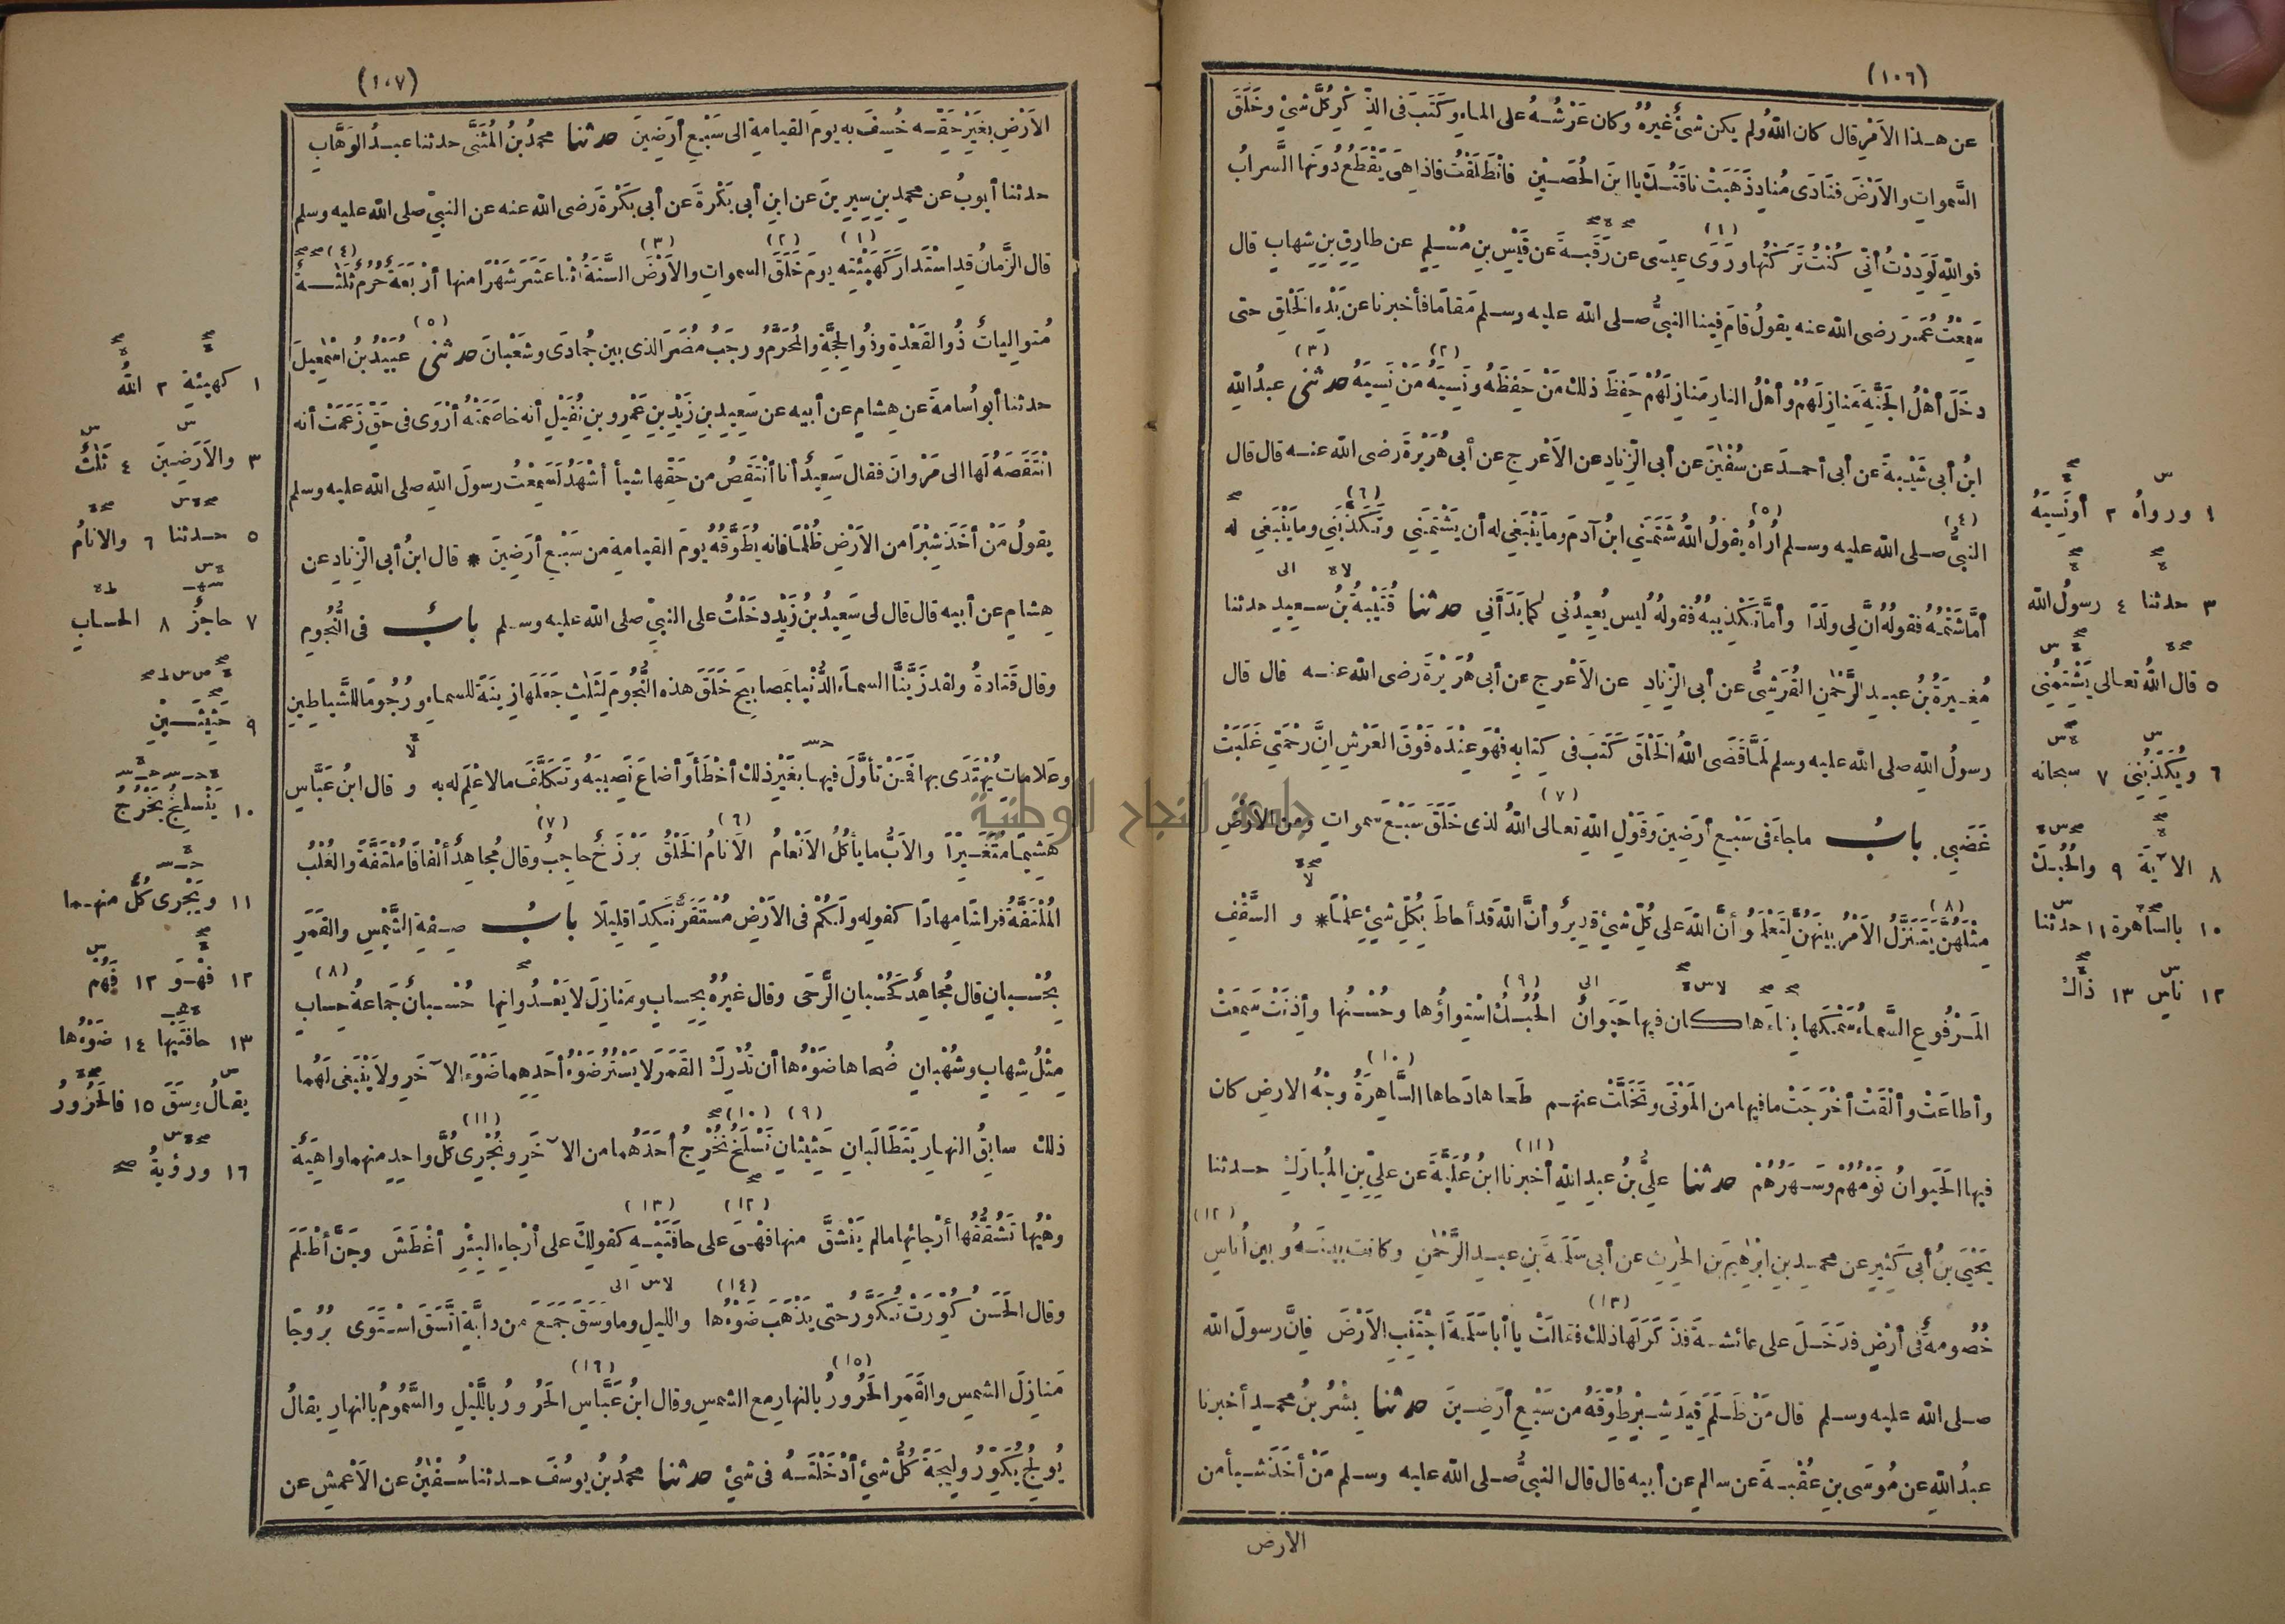 (١٠٦)
عن هـذا الاَمْرِ قال كان اللّٰهُ ولم يكن شئٌ غيرُهُ وكان عَرْشُـهُ على الماءِ وكَتَبَ فى الذِّكْرِ كُلَّ شئٍ وخَلَقَ
السَّمواتِ والاَرْضَ فنَادَى مُنادٍ ذَهَبَتْ ناقَتُـكَ يا ابنَ الحُصَـيْنِ فانْطَلَقْتُ فاذا هِىَ يَقْطَعُ دُونَها السَّرابُ
فواللّٰهِ لَوَدِدْتُ أنِّى كُنْتُ تَرَكْتُها ورَوَى عيسَى عن رَقَبَـةَ عن قَيْسِ بنِ مُسْـلِمٍ عن طارِقِ بنِ شِهابٍ قال
سَمِعْتُ عُمَرَ رضى الله عنه يقولُ قامَ فِينا النبىُّ صـلى الله عليه وسـلم مَقامًا فأخبرنا عن بَدْءِ الخَلْقِ حتى
دخَلَ أهْلُ الجَنَّةِ مَنازِلَهُمْ وأهْلُ النارِ مَنازِلَهُمْ حَفِظَ ذلك مَنْ حَفِظَهُ ونَسِيَهُ مَنْ نَسِيَهُ حدثنى عبدُ اللّٰهِ
ابنُ أبى شَيْبةَ عن أبى أحمـدَ عن سُفْيٰنَ عن أبى الزِّنادِ عن الاَعْرجِ عن أبى هُرَيْرةَ رضى الله عنـه قال قال
النبىُّ صـلى الله عليه وسـلم أُراهُ يقولُ اللّٰهُ شَتَمَنِى ابنُ آدمَ وما يَنْبَغِى له أن يَشْتِمَنِى وتَـكَذَّبَنِى وما يَنْبَغِى له
أمَّا شَتْمُـهُ فقولُهُ انَّ لى ولَدًا وأمَّا تَكْذِيبُهُ فقولُهُ لَيس يُعِيدُنى كما بَدَأَنى حدثنا قُتَيْبةُ بنُ سـعيدٍ حدثنا
مُغِـيرَةُ بنُ عبـدِ الرَّحْمٰنِ القُرَشِىُّ عن أبى الزِّنادِ عن الاَعْرجِ عن أبى هُرَيْرةَ رضى الله عنـه قال قال
رسولُ اللّٰهِ صلى الله عليه وسلم لَمَّا قَضَى اللّٰهُ الخَلْقَ كَتَبَ فى كِتابِهِ فَهْوَ عِنْدَه فَوْقَ العَرْشِ انَّ رحْمَتِى غَلَبَتْ
غَضَبِى بابُ ما جاءَ فى سَبْعِ أرَضِينَ وقَوْلِ اللّٰهِ تعـالى اللّٰهُ الذى خَلَقَ سَبْعَ سموات ومن الاَرْضِ
مِثْلَهُنَّ يَتَنَزَّلُ الاَمْرُ بينَهُنَّ لتَعْلَمُوا أنَّ اللّٰهَ على كُلِّ شئٍ قديرٌ وأنَّ اللّٰهَ قد أحاطَ بِكُلِّ شئٍ عِلْمًا * و السَّقْفِ
المَـرْفُوعِ السَّماءُ سَمْكَها بِناءَها كان فيها حَيَوانٌ الحُبُـكُ اسْتِواؤُها وحُسْـنُها وأذِنَتْ سَمِعَتْ
وأطاعَتْ وألْقَتْ أخْرَجَتْ ما فيها من المَوْتَى وتَخَلَّتْ عنهـم طَحاها دَحاها السَّاهِرَةُ وجْهُ الارضِ كان
فيها الحَيَوانُ نَوْمُهُمْ وسَـهَرُهُمْ حدثنا علىُّ بنُ عبدِ اللّٰهِ أخبرنا ابنُ عُلَيَّةَ عن علىِّ بنِ المُبارَكِ حـدثنا
يَحْيَى بنُ أبى كَثِيرٍ عن محمـدِ بنِ ابْرٰهِيمَ بنِ الحٰرِثِ عن أبى سَلَمَـةَ بنِ عبـدِ الرَّحْمٰنِ وكانت بينـهُ وبين أُناسٍ
خُصُومةٌ فى أرْضٍ فدَخَـلَ على عائشـةَ فذَكَرَ لَها ذلك فقالَتْ يا أباسَلَمةَ اجْتَنِبِ الاَرْضَ فانَّ رسولَ اللّٰه
صـلى الله عليه وسـلم قال مَنْ ظَـلَمَ قِيدَ شِـبْرٍ طُوِّقَهُ من سَبْعِ أرَضِـينَ حدثنا بِشْرُ بنُ محمـدٍ أخبرنا
عبدُ اللّٰهِ عن مُوسَى بنِ عُقْبـةَ عن سالمٍ عن أبيه قال قال النبىُّ صـلى الله عليه وسـلم مَنْ أخَذَ شيأ من
الارض
١ ورواهُ ٢ أونَسِيَهُ
٣ حدثنا ٤ رسولُ اللّٰه
٥ قال اللّٰهُ تعـالى يَشْتِمُنِى
٦ ويُكَذِّبُنِى ٧ سبحانه
٨ الآيةَ ٩ والحُبُـكُ
١٠ بالسَّاهرة ١١ حدثنا
١٢ ناسٍ ١٣ ذاكَ
(١٠٧)
الاَرْضِ بغَيْرِ حَقِّـه خُسِفَ به يومَ القيامةِ الى سَبْعِ أرَضِينَ حدثنا محمدُ بنُ المُثَنَّى حدثنا عبـدُ الوَهَّابِ
حدثنا أيوبُ عن محمدِ بنِ سِيرِينَ عن ابنِ أبى بَكْرةَ عن أبى بَكْرةَ رضى الله عنه عن النبىِّ صلى الله عليه وسلم
قال الزَّمانُ قدِ اسْتَدارَ كَهَيْئَتِه يومَ خَلَقَ السمواتِ والاَرْضَ السَّنَةُ اثْنا عَشَرَ شَهْرًا منها أرْبعَةٌ حُرُمٌ ثَلٰثَـةٌ
مُتوالياتٌ ذُو القَعْدةِ وذُو الحِجَّةِ والمُحَرَّمُ ورجَبُ مُضَرَ الذى بين جُمادَى وشَعْبانَ حدثنى عُبَيْدُ بنُ اسْمٰعِيلَ
حدثنا أبو أُسامةَ عن هِشامٍ عن أبيه عن سَعِيدِ بنِ زَيْدِ بنِ عَمْرِو بنِ نُفَيْلٍ أنه خاصَمَتْهُ أرْوَى فى حَقٍّ زَعَمَتْ أنه
انْتَقَصَهُ لَها الى مَرْوانَ فقال سَعِيدٌ أنا أنْتَقِصُ من حَقِّها شيأ أشْهَدُ لَسَمِعْتُ رسولَ اللّٰهِ صلى الله عليه وسلم
يقولُ مَنْ أخَذَ شِبْرًا من الاَرْضِ ظُلْمًا فانه يُطَوَّقُهُ يومَ القيامةِ من سَبْعِ أرَضِينَ * قال ابنُ أبى الزِّنادِ عن
هِشامٍ عن أبيه قال قال لى سَعِيدُ بنُ زَيْدٍ دخَلْتُ على النبىِّ صلى الله عليه وسـلم بابٌ فى النُّجُومِ
وقال قَتادةُ ولقد زَيَّنَّا السماءَ الدُّنْيا بمَصابِيحَ خَلَقَ هذه النُّجُومَ لثَلٰثٍ جَعَلَها زِينَةً للسماءِ ورُجُومًا للشَّياطِينِ
وعَلاماتٍ يُهْتَدَى بها فَمَنْ تأوَّلَ فيهـا بغَيْرِ ذلك أخْطَأَ وأضاعَ نَصِيبَهُ وتَكَلَّفَ مالا عِلْمَ له به و قال ابنُ عَبَّاسٍ
هَشِيمًا مُتَغَـيِّرًا والاَبُّ ما يأكُلُ الاَنْعامُ الاَنامُ الخَلْقُ بَرْزَخٌ حاجِبٌ وقال مُجاهِدٌ ألْفافًا مُلْتَفَّةً والغُلْبُ
المُلْتَفَّةُ فِراشًا مِهادًا كقوله ولَكُمْ فى الاَرْضِ مُسْتَقَرٌّ نَكِدًا قَلِيلًا بابُ صِـفةِ الشَّمْسِ والقَمَرِ
بِحُسْـبانٍ قال مُجاهِدٌ كَحُسْبانِ الرَّحَى وقال غيرُهُ بِحِسابٍ ومَنازِلَ لا يَعْـدُوانِها حُسْـبانٌ جَماعةُ حِسابٍ
مِثْلُ شِهابٍ وشُهْبانٍ ضُحاها ضَوْءُها أن تُدْرِكَ القَمَرَ لا يَسْتُرُ ضَوْءُ أحَدِهِما ضَوْءَ الآخَرِ ولا يَنْبَغى لَهُما
ذلك سابِقُ النهارِ يَتَطالَبانِ حَثِيثانِ نَسْلَخُ نُخْرِجُ أحَدَهُما من الآخَرِ ونُجْرِى كُلَّ واحِدٍ منهما واهِيَةٌ
وهْيُها تَشَقُّقُها أرْجائِها مالم يَنْشَقَّ منها فَهْىَ على حافَتَيْـهِ كقولِكَ على أرْجاءِ البِئْرِ أغْطَشَ وجَنَّ أظْلَمَ
وقال الحَسَنُ كُوِّرَتْ تُـكَوَّرُ حتى يَذْهَبَ ضَوْءُها والليلِ وما وَسَقَ جَمَعَ من دابَّةٍ اتَّسَقَ اسْـتَوَى بُرُوجًا
مَنازِلَ الشمسِ والقَمَرِ الحَرُورُ بالنهارِ مع الشمسِ وقال ابنُ عَبَّاسٍ الحَرُورُ باللَّيْلِ والسَّمُومُ بالنهارِ يقالُ
يُولِجُ يُكَوِّرُ وليجَةً كُلُّ شئٍ أدْخَلْتَـهُ فى شئٍ حدثنا محمدُ بنُ يوسُفَ حـدثنا سُـفْيٰنُ عن الاَعْمَشِ عن
١ كهيئةِ ٢ اللّٰهُ
٣ والاَرَضِينَ ٤ ثَلٰثٌ
٥ حـدثنا ٦ والانامُ
٧ حاجزٌ ٨ الحساب
٩ حَثِيثَـيْنِ
١٠ يَنْسلِخُ يَخْرُجُ
١١ ويَجْرِى كُلٌّ منهـما
١٢ فَهْـوَ ١٢ فَهُم
١٣ حافتَيْها ١٤ ضَوْءُها
يقـالُ وسَقَ ١٥ فالحَرُورُ
١٦ ورؤبةُ
جامعة النجاح الوطنية